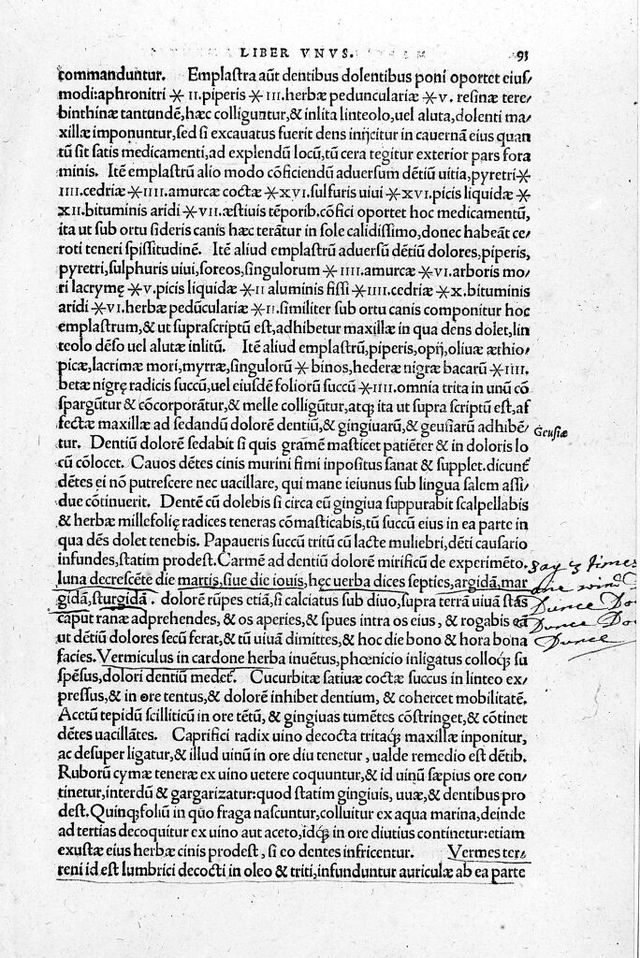 LIBER VNVS. 93
commanduntur. Emplastra aũt dentibus dolentibus poni oportet eius/
modi:aphronitri ⁎ II.piperis ⁎ III.herbæ pedunculariæ ⁎ V. resinæ tere/
binthinæ tantundẽ, hæc colliguntur,& inlita linteolo,uel aluta, dolenti ma/
xillæ imponuntur, sed si excauatus fuerit dens inijcitur in cauernã eius quan
tũ sit satis medicamenti, ad explendũ locũ, tũ cera tegitur exterior pars fora
minis. Itẽ emplastrũ alio modo cõficiendũ aduersum dẽtiũ uitia, pyretri⁎
IIII.cedriæ ⁎ IIII.amurcæ coctæ ⁎ XVI.sulfuris uiui ⁎ XVI.picis liquidæ ⁎
XII.bituminis aridi ⁎ VII.æstiuis tẽporib.cõfici oportet hoc medicamentũ,
ita ut sub ortu sideris canis hæc terãtur in sole calidissimo, donec habeãt ce/
roti teneri spissitudinẽ. Itẽ aliud emplastrũ aduersũ dẽtiũ dolores, piperis,
pyretri, sulphuris uiui, soreos, singulorum ⁎ IIII.amurcæ ⁎ VI. arboris mo/
ri lacrymę ⁎ V. picis liquidæ ⁎ II aluminis fissi ⁎ IIII.cedriæ ⁎ X. bituminis
aridi ⁎ VI.herbæ pedũculariæ ⁎ II.similiter sub ortu canis componitur hoc
emplastrum,& ut suprascriptũ est, adhibetur maxillæ in qua dens dolet, lin
teolo dẽso uel alutæ inlitũ. Itẽ aliud emplastrũ, piperis, opij, oliuæ æthio/
picæ, lacrimæ mori, myrræ, singulorũ ⁎ binos, hederæ nigræ bacarũ ⁎ IIII.
betæ nigrę radicis succũ, uel eiusdẽ foliorũ succũ ⁎ IIII.omnia trita in unũ cõ
spargũtur & cõcorporãtur,& melle colligũtur, atq́ʒ ita ut supra scriptũ est, af
fectæ maxillæ ad sedandũ dolorẽ dentiũ,& gingiuarũ,& geusiarũ adhibẽ/
Geusiæ
tur. Dentiũ dolorẽ sedabit si quis gramẽ masticet patiẽter & in doloris lo
cũ cõlocet. Cauos dẽtes cinis murini fimi inpositus sanat & supplet.dicunt
dẽtes ei nõ putrescere nec uacillare, qui mane ieiunus sub lingua salem assi/
due cõtinuerit. Dentẽ cũ dolebis si circa eũ gingiua suppurabit scalpellabis
& herbæ millefolię radices teneras cõmasticabis, tũ succũ eius in ea parte in
qua dẽs dolet tenebis. Papaueris succũ tritũ cũ lacte muliebri, dẽti causario
infundes, statim prodest. Carmẽ ad dentiũ dolorẽ mirificũ de experimẽto.
luna decrescẽte die martis, siue die iouis, hęc uerba dices septies, argidã, mar
gidã, sturgidã. dolorẽ rũpes etiã, si calciatus sub diuo, supra terrã uiuã stãs
caput ranæ adprehendes, & os aperies, & spues intra os eius, & rogabis eã
ut dẽtiũ dolores secũ ferat, & tũ uiuã dimittes, & hoc die bono & hora bona
say 7 times
Dunce
facies. Vermiculus in cardone herba inuẽtus, phœnicio inligatus colloq́ʒ su
spẽsus, dolori dentiũ medet́. Cucurbitæ satiuæ coctæ succus in linteo ex/
pressus,& in ore tentus, & dolorẽ inhibet dentium, & cohercet mobilitatẽ.
Acetũ tepidũ scilliticũ in ore tẽtũ, & gingiuas tumẽtes cõstringet, & cõtinet
dẽtes uacillãtes. Caprifici radix uino decocta tritaq́ʒ maxillæ inponitur,
ac desuper ligatur, & illud uinũ in ore diu tenetur, ualde remedio est dẽtib.
Ruborũ cymæ teneræ ex uino uetere coquuntur, & id uinũ sæpius ore con/
tinetur, interdũ & gargarizatur: quod statim gingiuis, uuæ, & dentibus pro
dest. Quinq́ʒfoliũ in quo fraga nascuntur, colluitur ex aqua marina, deinde
ad tertias decoquitur ex uino aut aceto, idq́ʒ in ore diutius continetur: etiam
exustæ eius herbæ cinis prodest, si eo dentes infricentur. Vermes ter/
reni id est lumbrici decocti in oleo & triti, infunduntur auriculæ ab ea parte